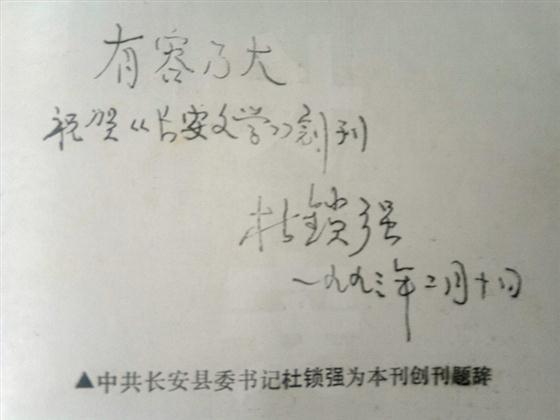 有容乃大
祝贺《长安文学》创刊
杜锁强
一九九三年二月十日
▲中共长安县委书记杜锁强为本刊创刊题辞